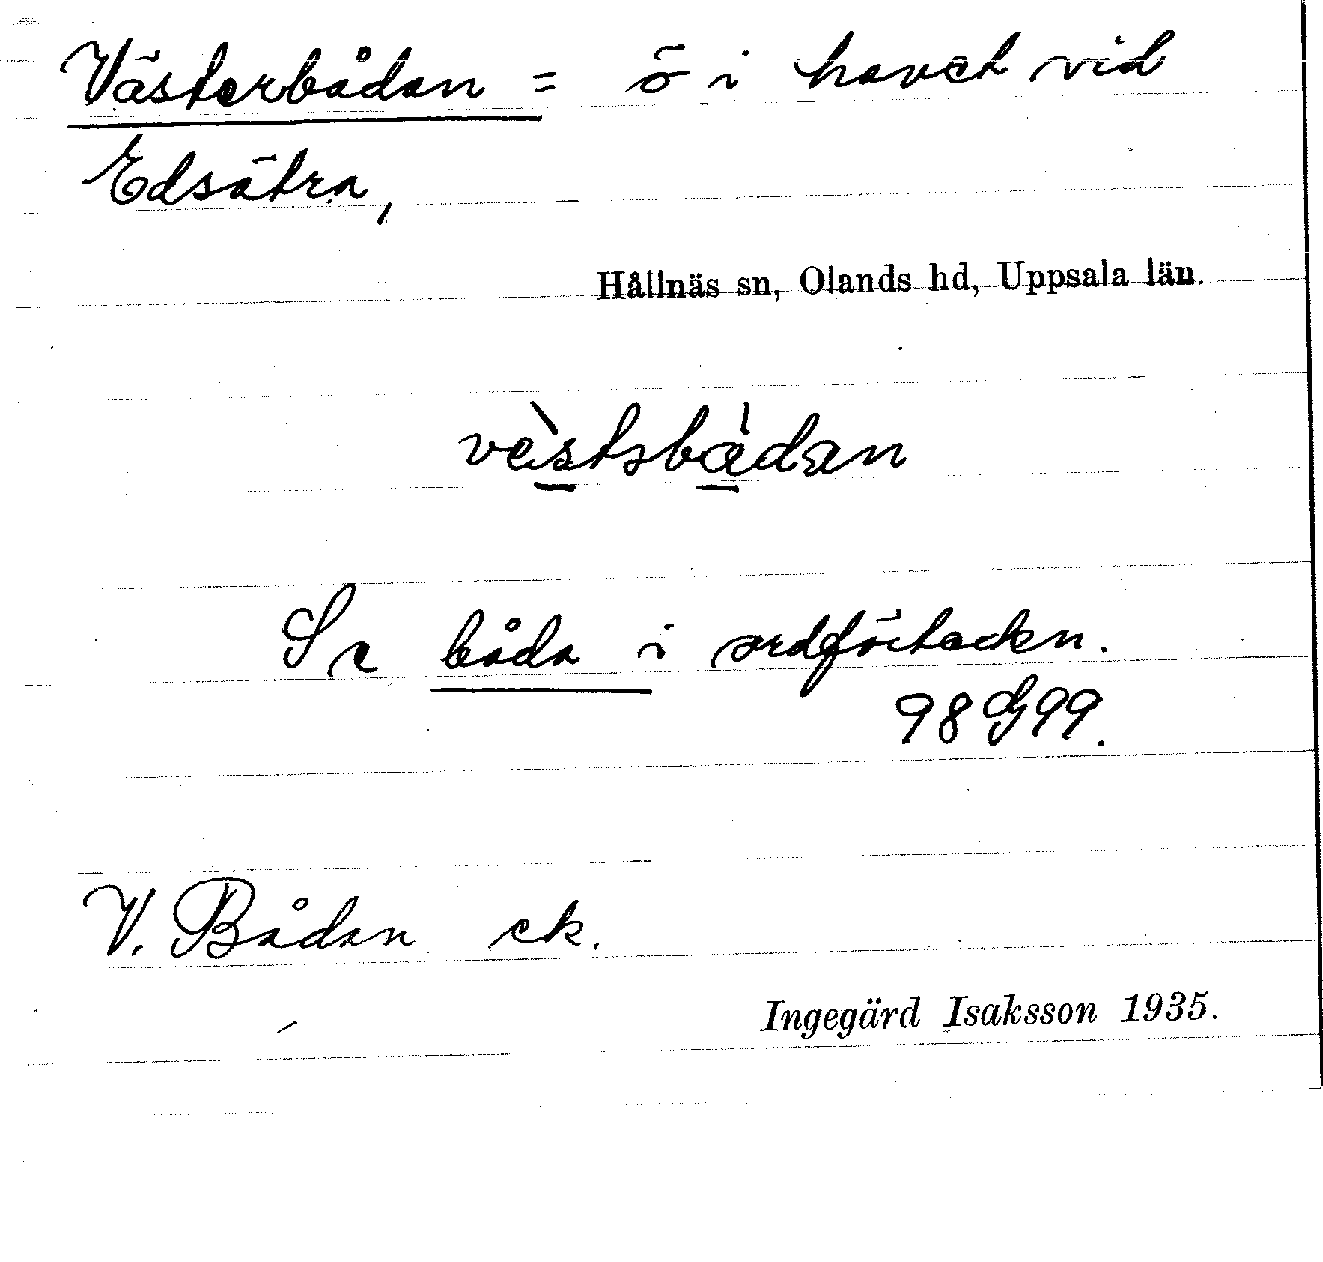 Västerbådan = ö i havet vid
Edsätra,
Hållnäs sn, Olands hd, Uppsala län.
Se båda i ordförteckn.
98 G 99.
V. Bådan ek.
Ingegärd Isaksson 1935.